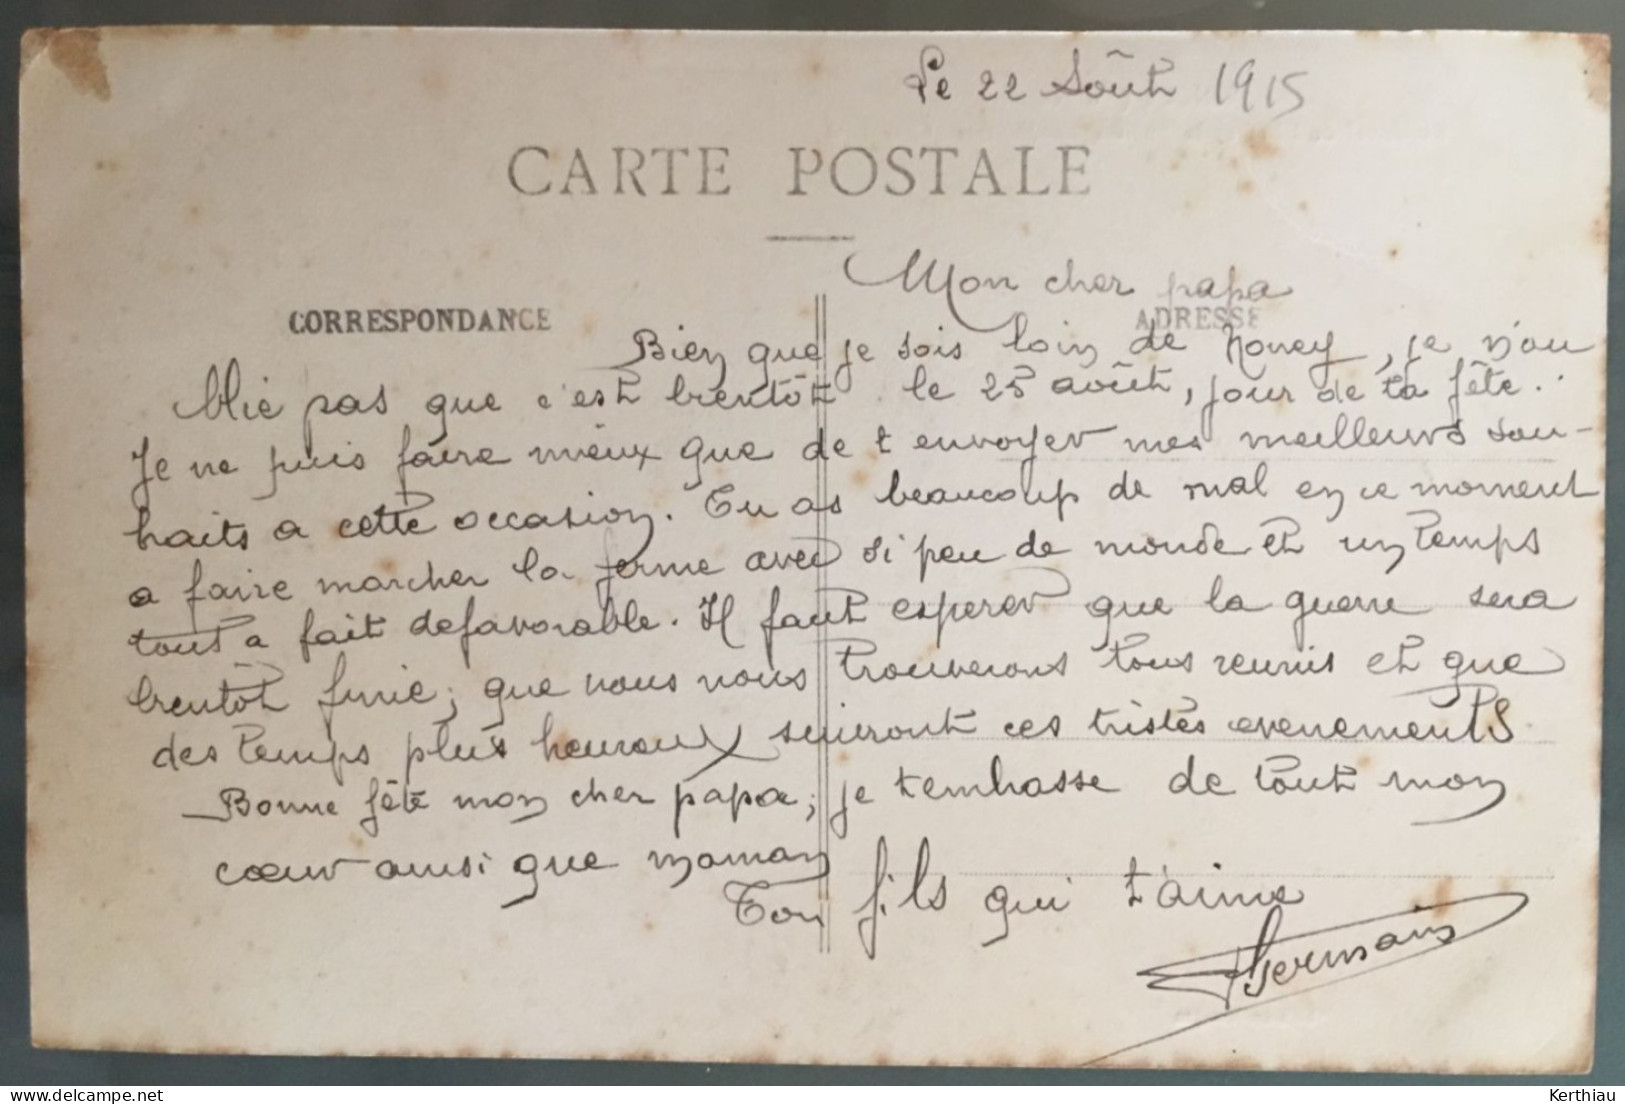 Le 22 Août 1915
CARTE POSTALE
Mon cher papa
CORRESPONDANCE
ADRESSE
Bien que je sois loin de Noney, je n'ou
blie pas que c'est bientôt le 25 août, jour de ta fête.
Je ne puis faire mieux que de t'envoyer mes meilleurs sou-
haits a cette occasion. Tu as beaucoup de mal en ce moment
a faire marcher la ferme avec si peu de monde et un temps
tout a fait defavorable. Il faut esperer que la guerre sera
bientôt finie; que nous nous trouverons tous reunis et que
des temps plus heureux suivront ces tristes evenements
Bonne fête mon cher papa; je t'embrasse de tout mon
cœur ainsi que maman
Ton fils qui t'aime
Germain
Kerthiau